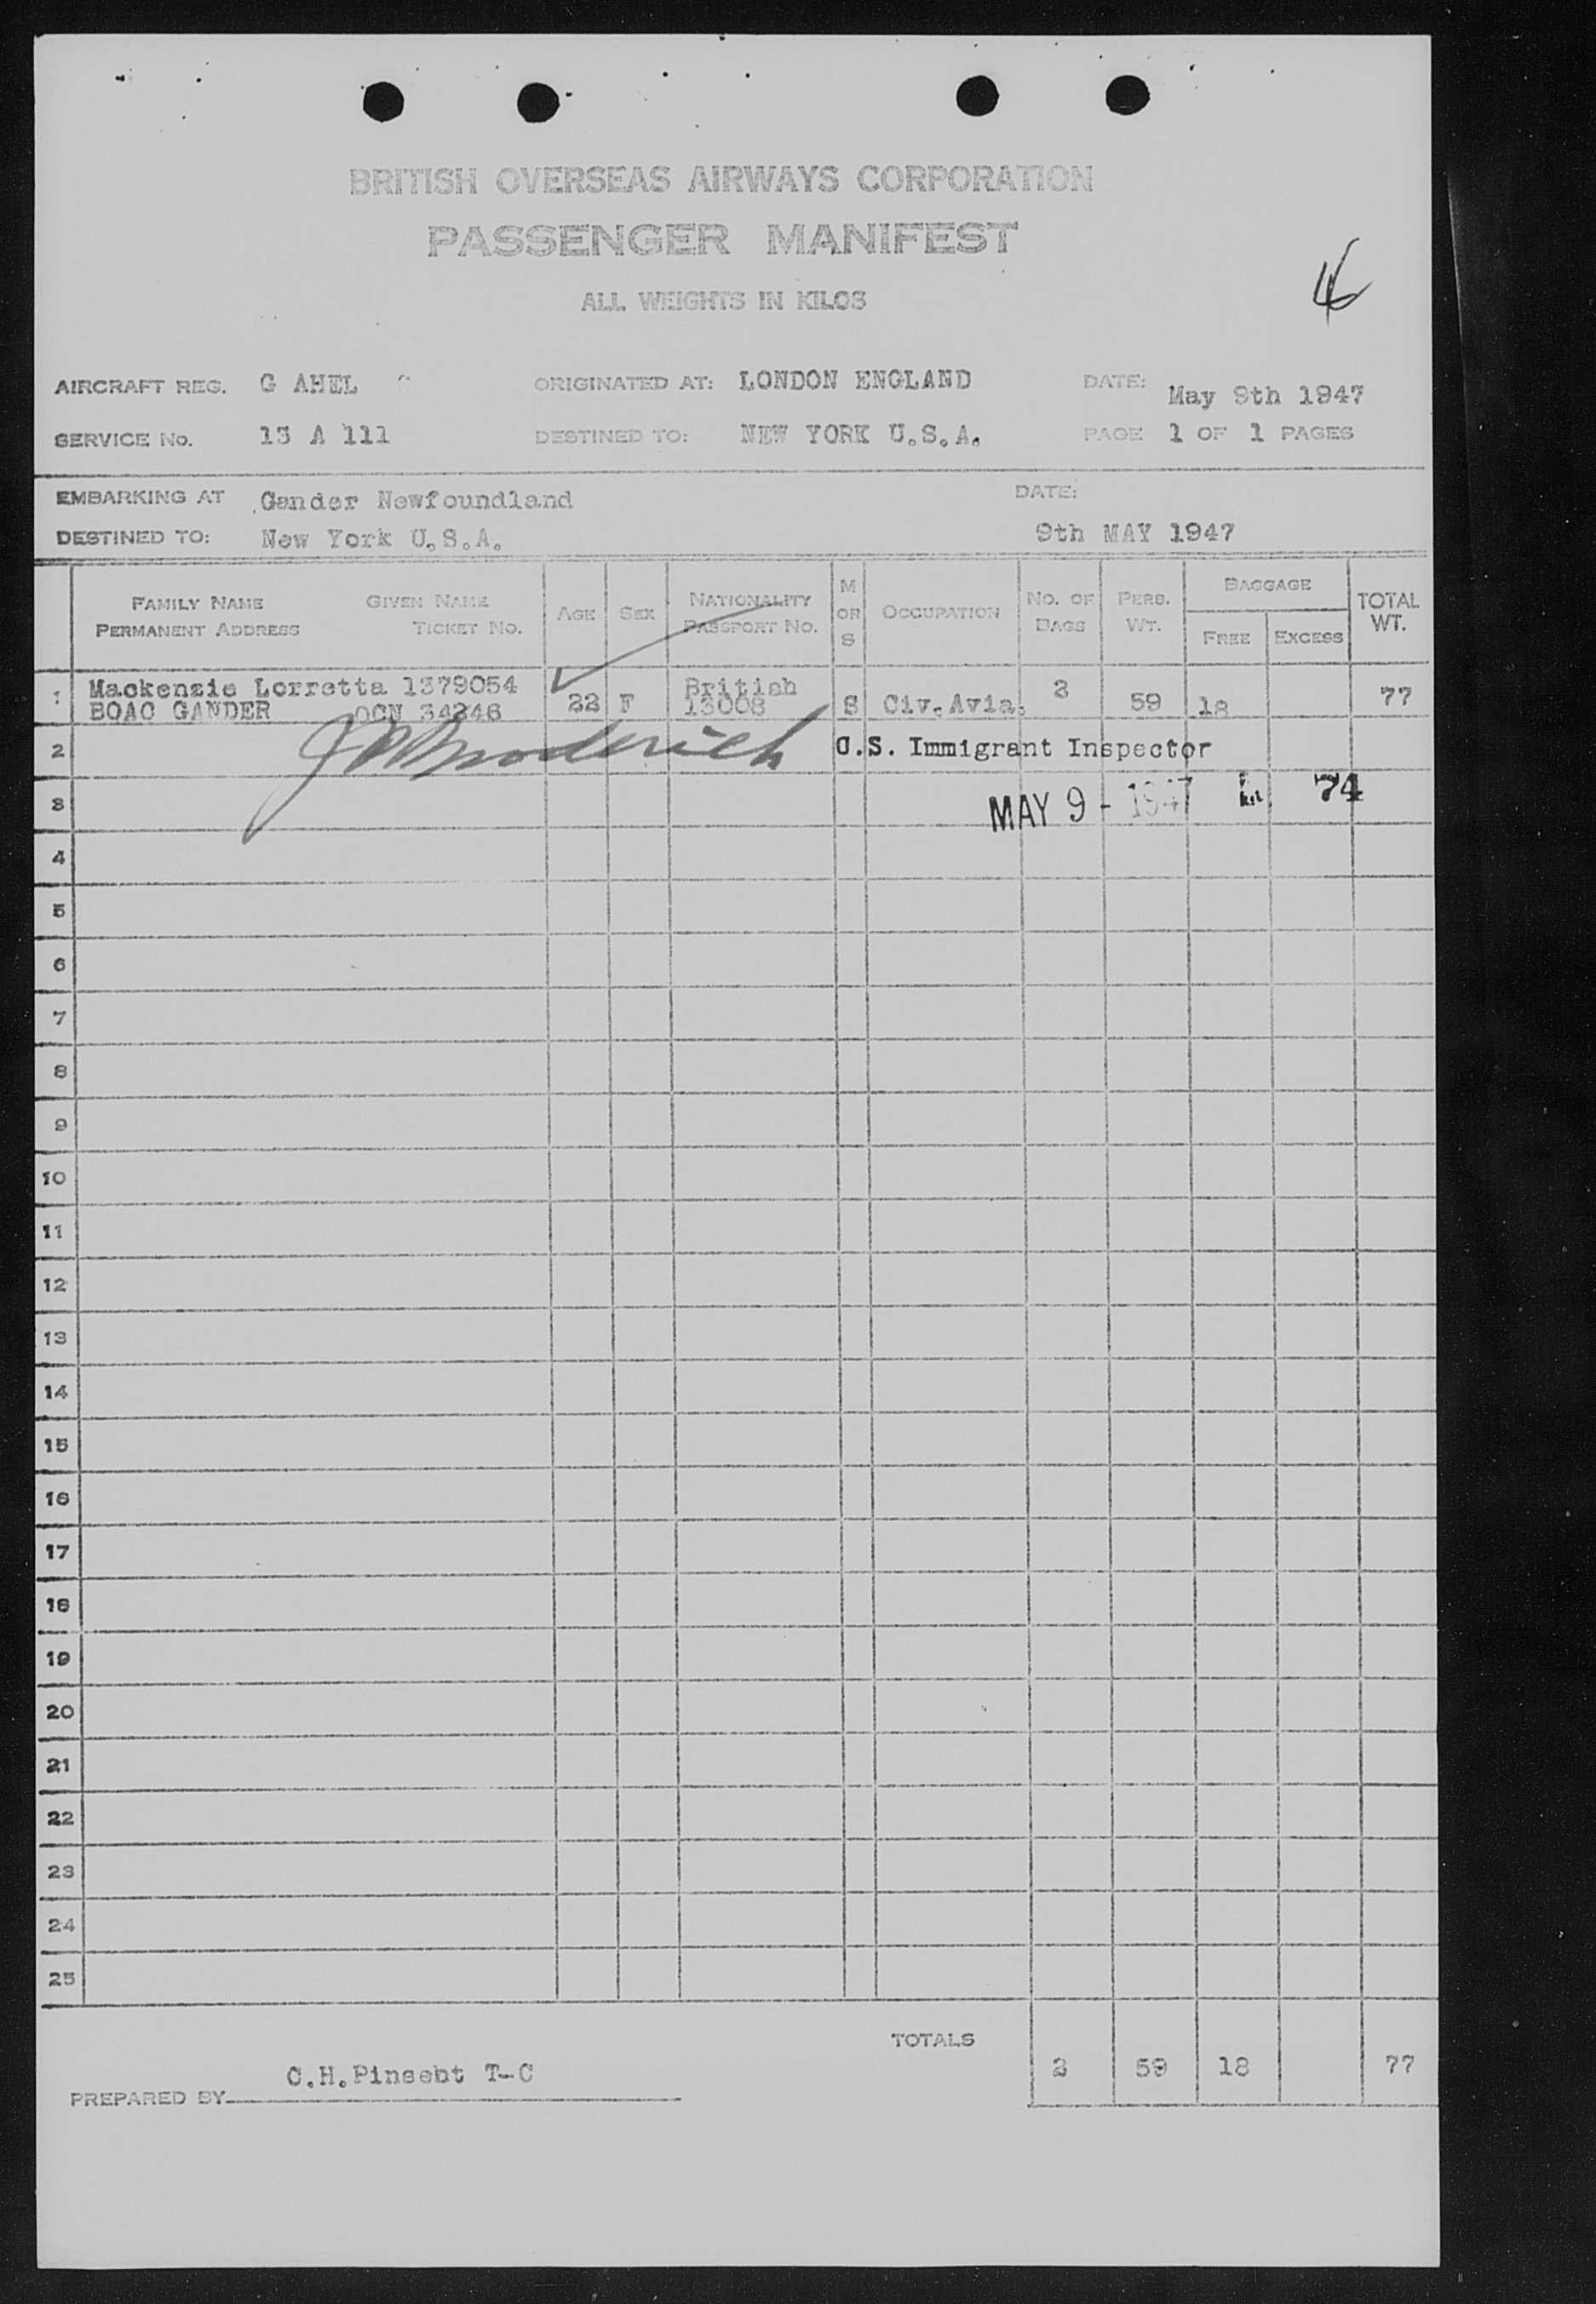 BRITISH OVERSEAS AIRWAYS CORPORATION
PASSENGER MANIFEST
ALL WEIGHTS IN KILOS
AIRCRAFT REG. G AHEL ORIGINATED AT: LONDON ENGLAND DATE: May 9th 1947
SERVICE No. 13 A 111 DESTINED TO: NEW YORK U.S.A. PAGE 1 OF 1 PAGES
EMBARKING AT Gander Newfoundland DATE:
DESTINED TO: New York U.S.A. 9th MAY 1947
FAMILY NAME GIVEN NAME AGE SEX NATIONALITY M OR S OCCUPATION NO. OF BAGS PERS. WT. BAGGAGE TOTAL WT.
PERMANENT ADDRESS TICKET NO. PASSPORT NO. FREE EXCESS
1 Mackenzie Lorretta 1379054 22 F British S Civ.Avia. 2 59 18 77
BOAC GANDER OCN 34246 13008
2 J Broderick U.S. Immigrant Inspector
3 MAY 9 - 1947 74
4
5
6
7
8
9
10
11
12
13
14
15
16
17
18
19
20
21
22
23
24
25
TOTALS 2 59 18 77
PREPARED BY C.H.Pinsebt T-C